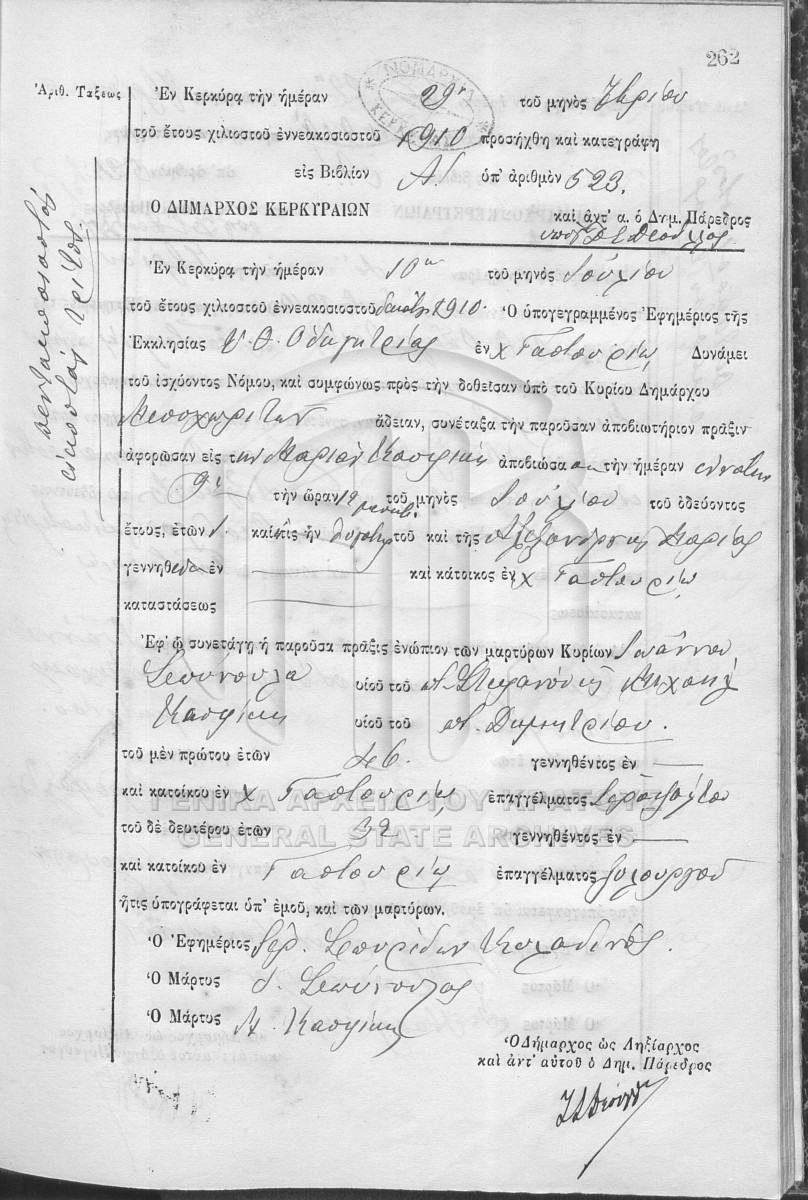 262
ΝΟΜΑΡΧΙΑ
ΚΕΡΚΥΡΑΣ
Ἀριθ. Τάξεως
πεντακοσιοστός
εἰκοστός τρίτος.
Ἐν Κερκύρᾳ τὴν ἡμέραν 29η τοῦ μηνός 7βρίου
τοῦ ἔτους χιλιοστοῦ ἐννεακοσιοστοῦ 1910 προσήχθη καὶ κατεγράφη
εἰς Βιβλίον Α. ὑπ' ἀριθμὸν 523.
Ὁ ΔΗΜΑΡΧΟΣ ΚΕΡΚΥΡΑΙΩΝ
καὶ ἀντ' α. ὁ Δημ. Πάρεδρος
Ἐν Κερκύρᾳ τὴν ἡμέραν 10η τοῦ μηνός Ἰουλίου
τοῦ ἔτους χιλιοστοῦ ἐννεακοσιοστοῦ δεκάτου 1910. Ὁ ὑπογεγραμμένος Ἐφημέριος τῆς
Ἐκκλησίας Υ. Θ. Οδηγητρίας ἐν χ Γαστουρίῳ Δυνάμει
τοῦ ἰσχύοντος Νόμου, καὶ συμφώνως πρὸς τὴν δοθεῖσαν ὑπὸ τοῦ Κυρίου Δημάρχου
Μεσοχωριτῶν ἄδειαν, συνέταξα τὴν παροῦσαν ἀποβιωτήριον πρᾶξιν
ἀφορῶσαν εἰς την Μαρίαν ἀποβιώσασαν τὴν ἡμέραν ἐννάτην
9η τὴν ὥραν 12 τοῦ μηνὸς Ἰουλίου τοῦ ὁδεύοντος
ἔτους, ἐτῶν 1. καὶ ἥτις ἦν θυγάτηρ τοῦ καὶ τῆς Ἀλεξάνδρου Μαρίας
γεννηθεῖσα ἐν καὶ κάτοικος ἐν χ Γαστουρίῳ
καταστάσεως
Ἐφ' ᾧ συνετάγη ἡ παροῦσα πρᾶξις ἐνώπιον τῶν μαρτύρων Κυρίων Ἰωάννου
υἱοῦ τοῦ π. Στεφάνου
υἱοῦ τοῦ π. Δημητρίου.
τοῦ μὲν πρώτου ἐτῶν 46. γεννηθέντος ἐν
καὶ κατοίκου ἐν χ Γαστουρίῳ ἐπαγγέλματος
τοῦ δὲ δευτέρου ἐτῶν 32 γεννηθέντος ἐν
καὶ κατοίκου ἐν Γαστουρίῳ ἐπαγγέλματος ξυλουργοῦ
ἥτις ὑπογράφεται ὑπ' ἐμοῦ, καὶ τῶν μαρτύρων.
Ὁ Ἐφημέριος Ἱερ. Σπυρίδων
Ὁ Μάρτυς Ι.
Ὁ Μάρτυς Μ.
Ὁ Δήμαρχος ὡς Ληξίαρχος
καὶ ἀντ' αὐτοῦ ὁ Δημ. Πάρεδρος
ΓΕΝΙΚΑ ΑΡΧΕΙΑ ΤΟΥ ΚΡΑΤΟΥΣ
GENERAL STATE ARCHIVES